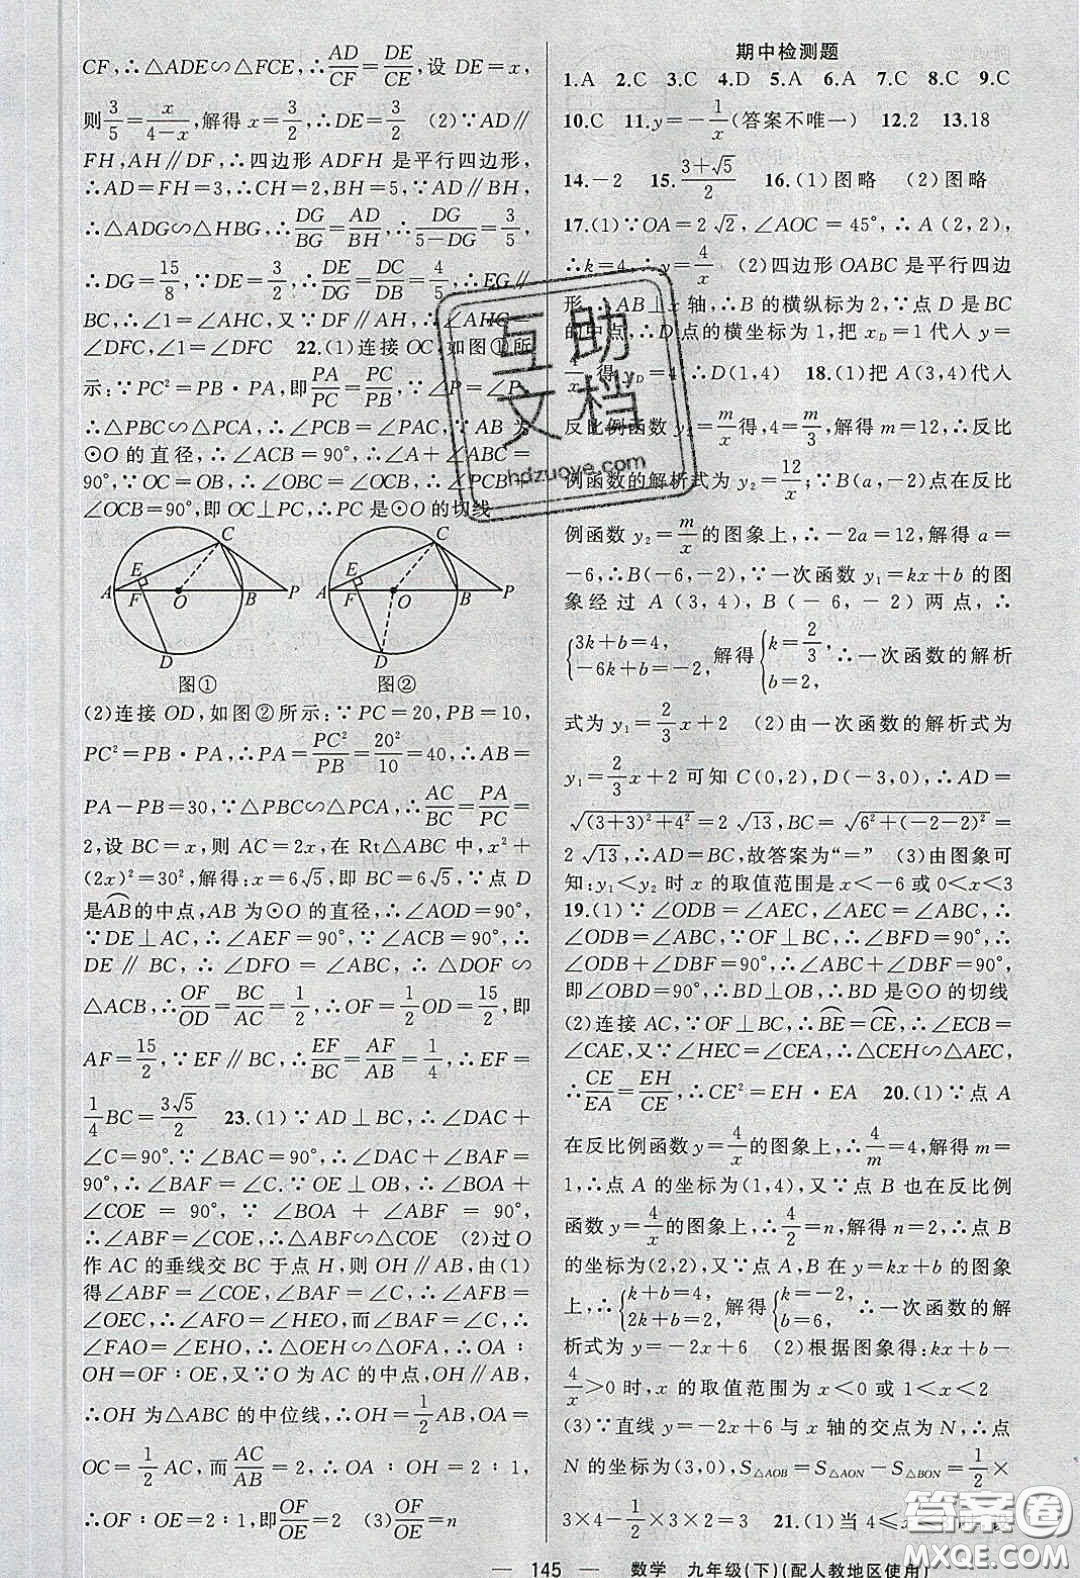 CF,∴△ADE∽△FCE,∴AD/CF=DE/CE,设 DE=x,
则3/5=x/(4-x),解得 x=3/2,∴DE=3/2 (2)∵AD∥
FH,AH∥DF,∴四边形 ADFH 是平行四边形,
∴AD=FH=3,∴CH=2,BH=5,∵AD∥BH,
∴△ADG∽△HBG,∴DG/BG=AD/BH,∴DG/(5-DG)=3/5,
∴DG=15/8,∵DE=3/2,∴DE/DG=DC/DB=4/5,∴EG∥
BC,∴∠1=∠AHC,又∵DF∥AH,∴∠AHC=
∠DFC,∠1=∠DFC 22.(1)连接 OC,如图①所
示:∵PC²=PB·PA,即PA/PC=PC/PB,∵∠P=∠P,
∴△PBC∽△PCA,∴∠PCB=∠PAC,∵AB 为
⊙O 的直径,∴∠ACB=90°,∴∠A+∠ABC=
90°,∵OC=OB,∴∠OBC=∠OCB,∴∠PCB+
∠OCB=90°,即 OC⊥PC,∴PC 是⊙O 的切线
A E F O B C P D
A E F O B C P D
图① 图②
(2)连接 OD,如图②所示:∵PC=20,PB=10,
PC²=PB·PA,∴PA=PC²/PB=20²/10=40,∴AB=
PA-PB=30,∵△PBC∽△PCA,∴AC/BC=PA/PC=
2,设 BC=x,则 AC=2x,在 Rt△ABC 中,x²+
(2x)²=30²,解得:x=6√5,即 BC=6√5,∵点 D
是AB的中点,AB 为⊙O 的直径,∴∠AOD=90°,
∵DE⊥AC,∴∠AEF=90°,∵∠ACB=90°,∴
DE∥BC,∴∠DFO=∠ABC,∴△DOF∽
△ACB,∴OF/OD=BC/AC=1/2,∴OF=1/2OD=15/2,即
AF=15/2,∵EF∥BC,∴EF/BC=AF/AB=1/4,∴EF=
1/4BC=3√5/2 23.(1)∵AD⊥BC,∴∠DAC+
∠C=90°.∵∠BAC=90°,∴∠DAC+∠BAF=
90°,∴∠BAF=∠C.∵OE⊥OB,∴∠BOA+
∠COE=90°,∵∠BOA+∠ABF=90°,
∴∠ABF=∠COE,∴△ABF∽△COE (2)过 O
作 AC 的垂线交 BC 于点 H,则 OH∥AB,由(1)
得∠ABF=∠COE,∠BAF=∠C,∴∠AFB=
∠OEC,∴∠AFO=∠HEO,而∠BAF=∠C,∴
∠FAO=∠EHO,∴△OEH∽△OFA,∴OA∶
OH=OF∶OE,又∵O 为 AC 的中点,OH∥AB,
∴OH 为△ABC 的中位线,∴OH=1/2AB,OA=
OC=1/2AC,而AC/AB=2,∴OA∶OH=2∶1,
∴OF∶OE=2∶1,即OF/OE=2 (3)OF/OE=n
期中检测题
1.A 2.C 3.C 4.D 5.A 6.A 7.C 8.C 9.C
10.C 11.y=-1/x(答案不唯一) 12.2 13.18
14.-2 15.(3+√5)/2 16.(1)图略 (2)图略
17.(1)∵OA=2√2,∠AOC=45°,∴A(2,2),
∴k=4,∴y=4/x (2)四边形 OABC 是平行四边
形,∴AB⊥x 轴,∴B 的横纵标为 2,∵点 D 是 BC
的中点,∴D 点的横坐标为 1,把 x_D=1 代人 y=
4/x,得 y_D=4,∴D(1,4) 18.(1)把 A(3,4)代人
反比例函数 y₂=m/x得,4=m/3,解得 m=12,∴反比
例函数的解析式为 y₂=12/x;∵B(a,-2)点在反比
例函数 y₂=m/x的图象上,∴-2a=12,解得 a=
-6,∴B(-6,-2),∵一次函数 y₁=kx+b 的图
象经过 A(3,4),B(-6,-2)两点,∴
{3k+b=4, -6k+b=-2, 解得{k=2/3, b=2, ∴一次函数的解析
式为 y₁=2/3x+2 (2)由一次函数的解析式为
y₁=2/3x+2 可知 C(0,2),D(-3,0),∴AD=
√((3+3)²+4²)=2√13,BC=√(6²+(-2-2)²)=
2√13,∴AD=BC,故答案为“=” (3)由图象可
知:y₁<y₂ 时 x 的取值范围是 x<-6 或 0<x<3
19.(1)∵∠ODB=∠AEC,∠AEC=∠ABC,∴
∠ODB=∠ABC,∵OF⊥BC,∴∠BFD=90°,∴
∠ODB+∠DBF=90°,∴∠ABC+∠DBF=90°,
即∠OBD=90°,∴BD⊥OB,∴BD 是⊙O 的切线
(2)连接 AC,∵OF⊥BC,∴BE=CE,∴∠ECB=
∠CAE,又∵∠HEC=∠CEA,∴△CEH∽△AEC,
∴CE/EA=EH/CE,∴CE²=EH·EA 20.(1)∵点 A
在反比例函数 y=4/x的图象上,∴4/m=4,解得 m=
1,∴点 A 的坐标为(1,4),又∵点 B 也在反比例
函数 y=4/x的图象上,∴4/2=n,解得 n=2,∴点 B
的坐标为(2,2),又∵点 A,B 在 y=kx+b 的图象
上,∴{k+b=4, 2k+b=2, 解得{k=-2, b=6, ∴一次函数的解
析式为 y=-2x+6 (2)根据图象得:kx+b-
4/x>0 时,x 的取值范围为 x<0 或 1<x<2
(3)∵直线 y=-2x+6 与 x 轴的交点为 N,∴点
N 的坐标为(3,0),S△AOB=S△AON-S△BON=1/2×
3×4-1/2×3×2=3 21.(1)当 4≤x
— 145 — 数学 九年级(下)(配人教地区使用)
互助
文档
hdzuoye.com
答案圈
MXQE.COM